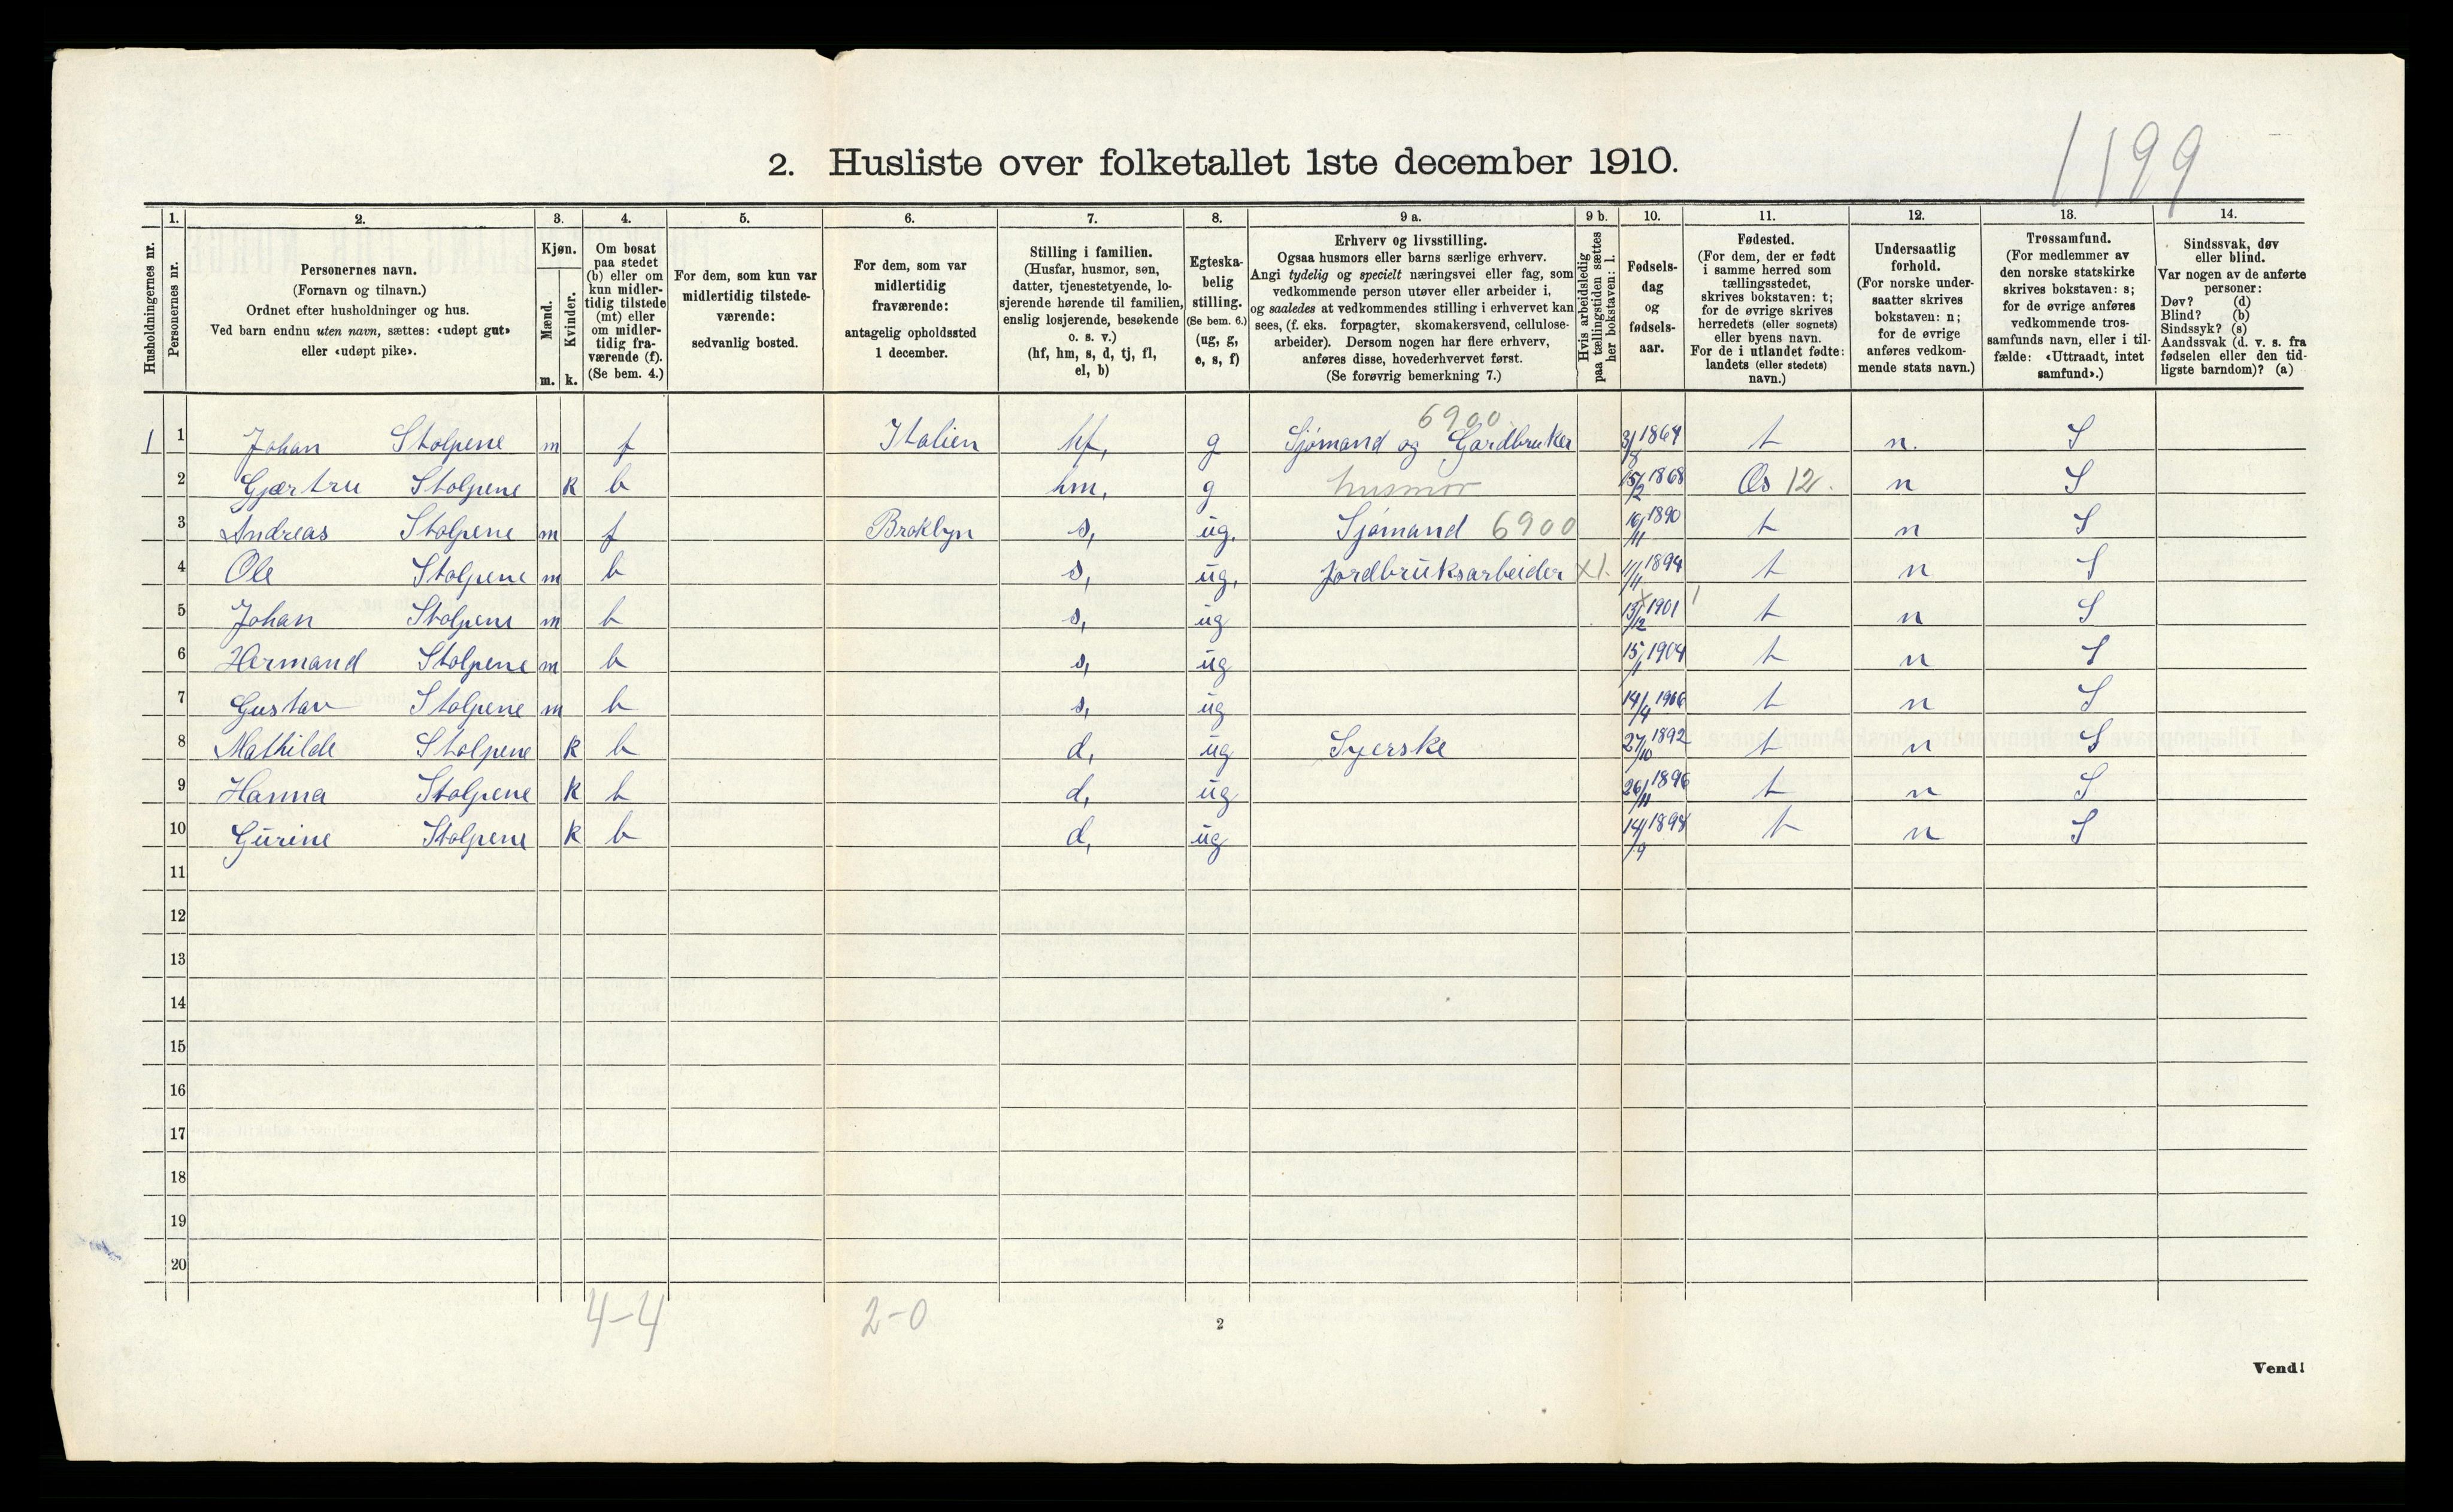 1199
2. Husliste over folketallet 1ste december 1910.
1. 2. 3. 4. 5. 6. 7. 8. 9 a. 9 b. 10. 11. 12. 13. 14.
Husholdningernes nr.
Personernes nr.
Personernes navn.
(Fornavn og tilnavn.)
Ordnet efter husholdninger og hus.
Ved barn endnu uten navn, sættes: «udøpt gut»
eller «udøpt pike».
Kjøn.
Mænd.
Kvinder.
m. k.
Om bosat
paa stedet
(b) eller om
kun midler-
tidig tilstede
(mt) eller
om midler-
tidig fra-
værende (f).
(Se bem. 4.)
For dem, som kun var
midlertidig tilstede-
værende:
sedvanlig bosted.
For dem, som var
midlertidig
fraværende:
antagelig opholdssted
1 december.
Stilling i familien.
(Husfar, husmor, søn,
datter, tjenestetyende, lo-
sjerende hørende til familien,
enslig losjerende, besøkende
o. s. v.)
(hf, hm, s, d, tj, fl,
el, b)
Egteska-
belig
stilling.
(Se bem. 6.)
(ug, g,
e, s, f)
Erhverv og livsstilling.
Ogsaa husmors eller barns særlige erhverv.
Angi tydelig og specielt næringsvei eller fag, som
vedkommende person utøver eller arbeider i,
og saaledes at vedkommendes stilling i erhvervet kan
sees, (f. eks. forpagter, skomakersvend, cellulose-
arbeider). Dersom nogen har flere erhverv,
anføres disse, hovederhvervet først.
(Se forøvrig bemerkning 7.)
Hvis arbeidsledig
paa tællingstiden sættes
her bokstaven: l.
Fødsels-
dag
og
fødsels-
aar.
Fødested.
(For dem, der er født
i samme herred som
tællingsstedet,
skrives bokstaven: t;
for de øvrige skrives
herredets (eller sognets)
eller byens navn.
For de i utlandet fødte:
landets (eller stedets)
navn.)
Undersaatlig
forhold.
(For norske under-
saatter skrives
bokstaven: n;
for de øvrige
anføres vedkom-
mende stats navn.)
Trossamfund.
(For medlemmer av
den norske statskirke
skrives bokstaven: s;
for de øvrige anføres
vedkommende tros-
samfunds navn, eller i til-
fælde: «Uttraadt, intet
samfund».)
Sindssvak, døv
eller blind.
Var nogen av de anførte
personer:
Døv? (d)
Blind? (b)
Sindssyk? (s)
Aandssvak (d. v. s. fra
fødselen eller den tid-
ligste barndom)? (a)
6900
1 1 Johan Stolpene m f Italien hf, g Sjømand og Gardbruker 3/8 1864 t n. S
2 Gjærtru Stolpene k b hm, g husmor 15/2 1868 Os 12. n S
3 Andreas Stolpene m f Broklyn s, ug. Sjømand 6900 16/11 1890 t n S
4 Ole Stolpene m b s, ug, Jordbruksarbeider x l. 11/11 1894 t n S
5 Johan Stolpene m b s, ug 13/12 1901 t n S
6 Hermand Stolpene m b s, ug 15/1 1904 t n S
7 Gustav Stolpene m b s, ug 14/4 1906 t n S
8 Mathilde Stolpene k b d, ug Syerske 27/10 1892 t n S
9 Hanna Stolpene k b d, ug 26/11 1896 t n S
10 Gurine Stolpene k b d, ug 14/9 1898 t n S
11
12
13
14
15
16
17
18
19
20
4-4 2-0
2
Vend!